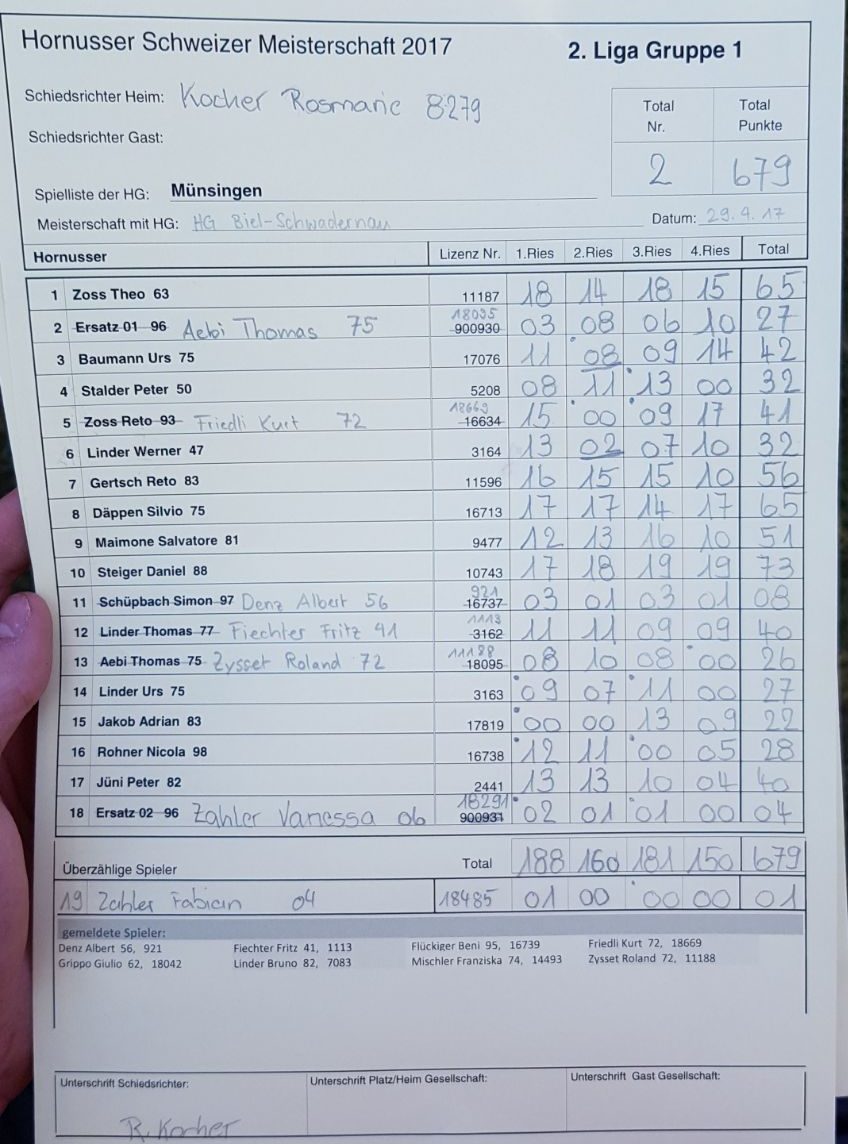 Hornusser Schweizer Meisterschaft 2017 2. Liga Gruppe 1
Schiedsrichter Heim: Kocher Rosmarie 8279 Total Nr. Total Punkte
Schiedsrichter Gast: 2 679
Spielliste der HG: Münsingen
Meisterschaft mit HG: HG Biel-Schwadernau Datum: 29.4.17
Hornusser Lizenz Nr. 1.Ries 2.Ries 3.Ries 4.Ries Total
1 Zoss Theo 63 11187 18 14 18 15 65
2 Ersatz 01 96 Aebi Thomas 75 18095 900930 03 08 06 10 27
3 Baumann Urs 75 17076 11 08 09 14 42
4 Stalder Peter 50 5208 08 11 13 00 32
5 Zoss Reto 93 Friedli Kurt 72 18669 16634 15 00 09 17 41
6 Linder Werner 47 3164 13 02 07 10 32
7 Gertsch Reto 83 11596 16 15 15 10 56
8 Däppen Silvio 75 16713 17 17 14 17 65
9 Maimone Salvatore 81 9477 12 13 16 10 51
10 Steiger Daniel 88 10743 17 18 19 19 73
11 Schüpbach Simon 97 Denz Albert 56 921 16737 03 01 03 01 08
12 Linder Thomas 77 Fiechter Fritz 41 1113 3162 11 11 09 09 40
13 Aebi Thomas 75 Zysset Roland 72 11188 18095 08 10 08 00 26
14 Linder Urs 75 3163 09 07 11 00 27
15 Jakob Adrian 83 17819 00 00 13 09 22
16 Rohner Nicola 98 16738 12 11 00 05 28
17 Jüni Peter 82 2441 13 13 10 04 40
18 Ersatz 02 96 Zahler Vanessa 06 18291 900931 02 01 01 00 04
Überzählige Spieler Total 188 160 181 150 679
19 Zahler Fabian 04 18485 01 00 00 00 01
gemeldete Spieler:
Denz Albert 56, 921 Fiechter Fritz 41, 1113 Flückiger Beni 95, 16739 Friedli Kurt 72, 18669
Grippo Giulio 62, 18042 Linder Bruno 82, 7083 Mischler Franziska 74, 14493 Zysset Roland 72, 11188
Unterschrift Schiedsrichter: Unterschrift Platz/Heim Gesellschaft: Unterschrift Gast Gesellschaft:
R. Kocher